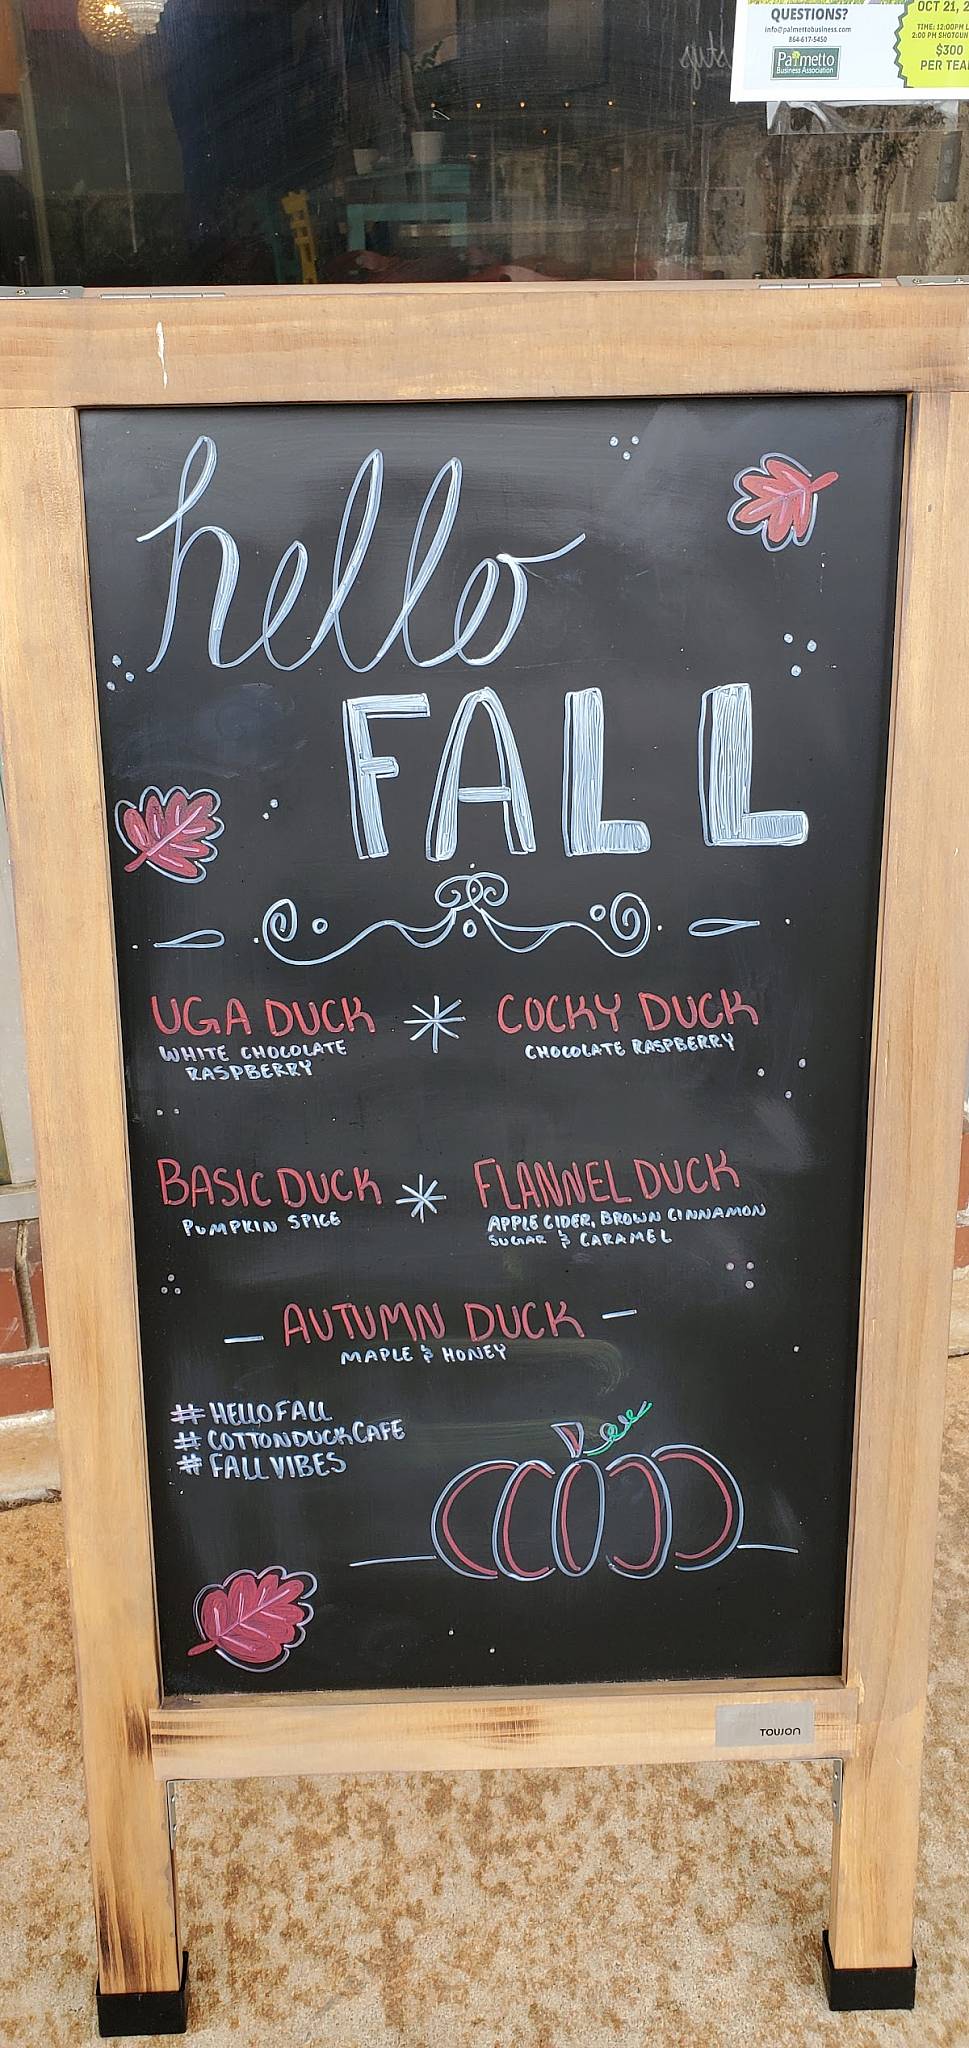 QUESTIONS?
info@palmettobusiness.com
864-617-5450
Palmetto
Business Association
OCT 21, 2
TIME: 12:00PM L
2:00 PM SHOTGUN
$300
PER TEA
hello
FALL
UGA DUCK * COCKY DUCK
WHITE CHOCOLATE
RASPBERRY
CHOCOLATE RASPBERRY
BASIC DUCK * FLANNEL DUCK
PUMPKIN SPICE
APPLE CIDER, BROWN CINNAMON
SUGAR & CARAMEL
— AUTUMN DUCK —
MAPLE & HONEY
# HELLOFALL
# COTTONDUCKCAFE
# FALLVIBES
TOUJON